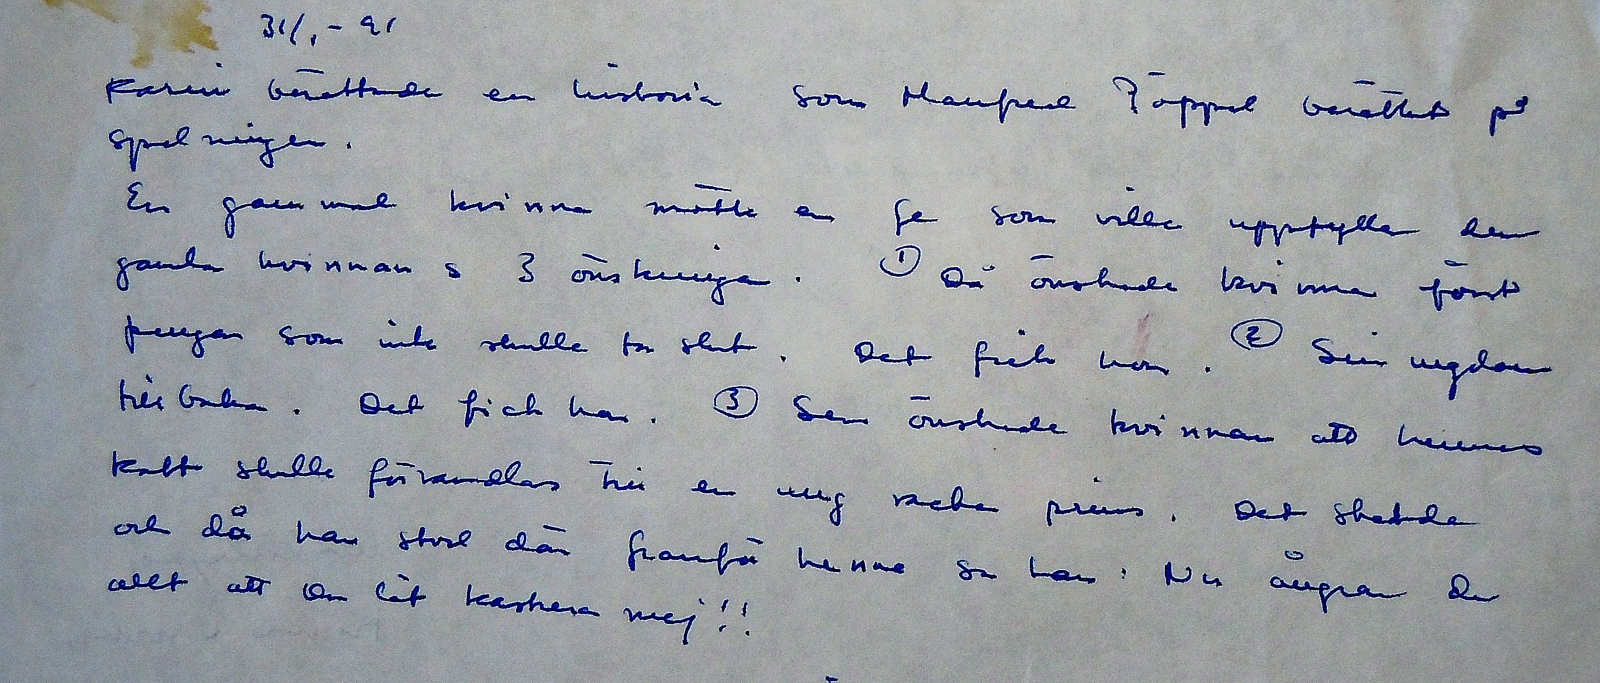 31/1 - 91
Karin berättade en historia som Manfred berättat på
spelningen.
En gammal kvinna mötte en fe som ville uppfylla den
gamla kvinnans 3 önskningar. ① Då önskade kvinnan först
pengar som inte skulle ta slut. Det fick hon. ② Sin ungdom
tillbaka. Det fick hon. ③ Sen önskade kvinnan att hennes
katt skulle förvandlas till en ung vacker prins. Det skedde
och då han stod där framför henne sa han: Nu ångrar du
allt att du lät kastrera mej!!